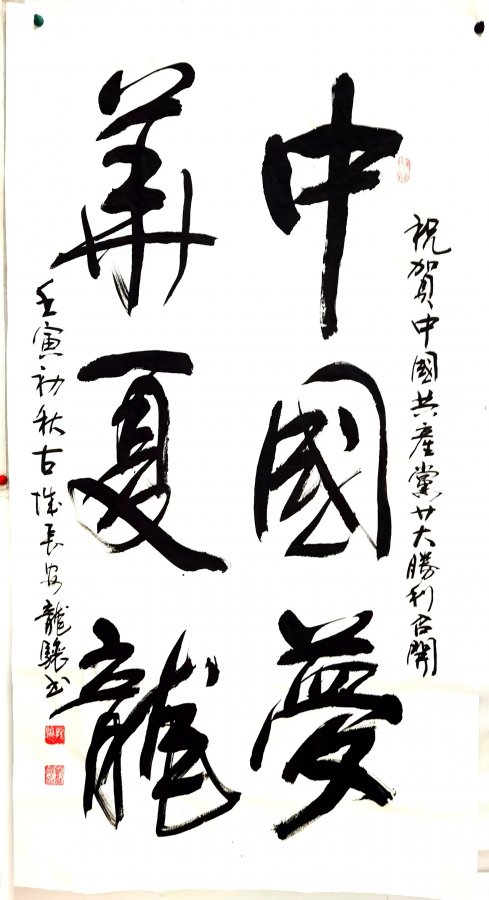 祝賀中國共產黨廿大勝利召開
中國夢
華夏龍
壬寅初秋古城長安龍驤书